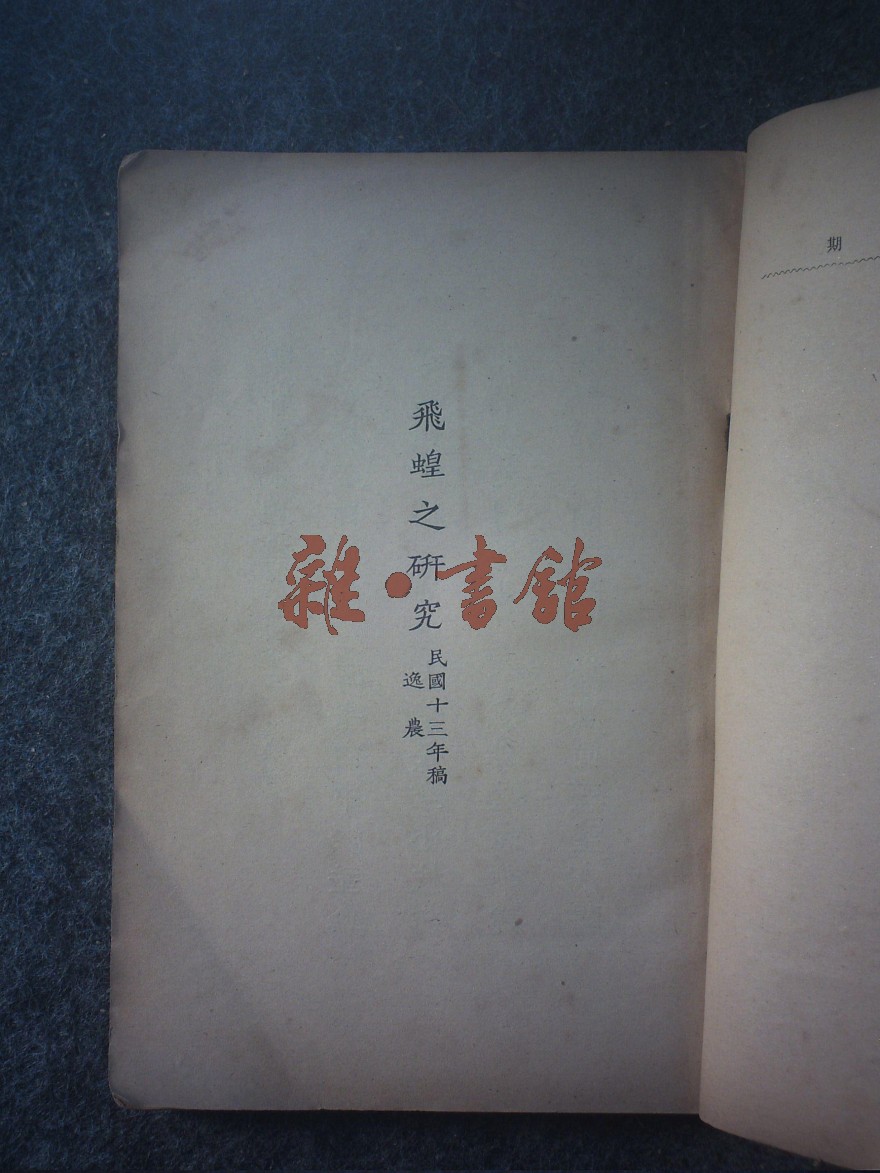 期
飛蝗之研究
民國十三年稿
逸農
雜·書館